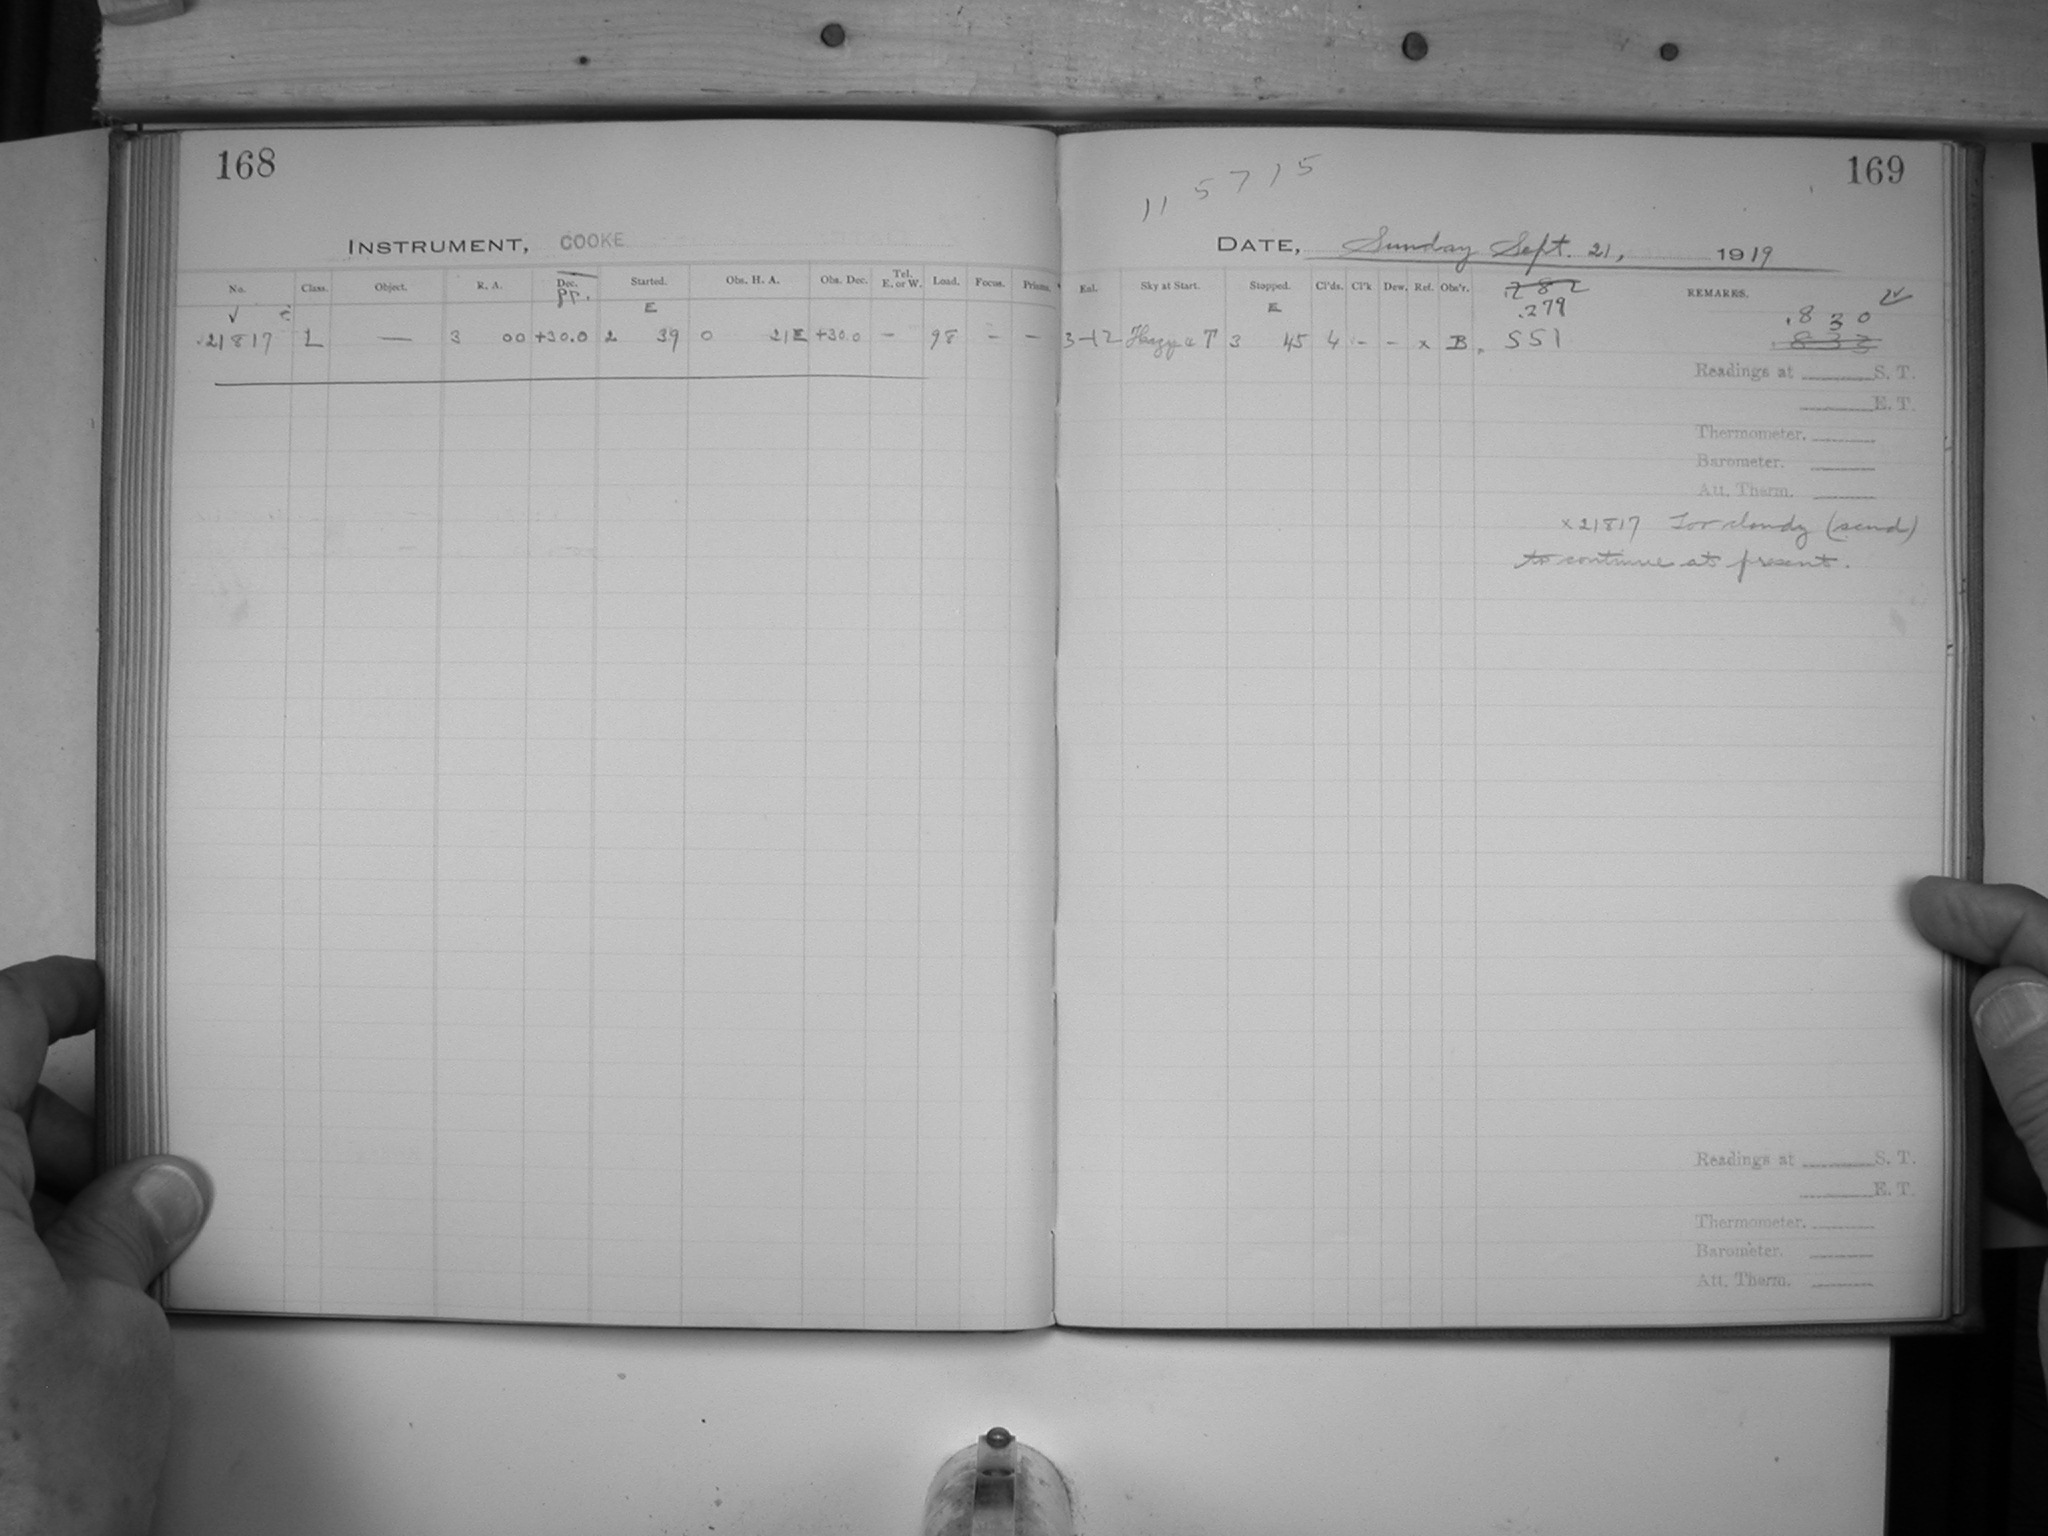 168
INSTRUMENT, COOKE
No. Class. Object. R. A. Dec. Started. Obs. H. A. Obs. Dec. Tel. E. or W. Load. Focus. Prisms.
pr. E
21817 L — 3 00 +30.0 2 39 0 21E +30.0 – 98 – –
169
115715
DATE, Sunday Sept. 21, 1919
Exl. Sky at Start. Stopped. Cl'ds. Cl'k Dew. Ref. Obs'r. REMARKS.
.282
E .279 .830
3-12 Hazy 3 45 4 – – x B .551 .833
Readings at S. T.
E. T.
Thermometer.
Barometer.
Att. Therm.
x 21817 Too cloudy (scud)
to continue at present.
Readings at S. T.
E. T.
Thermometer.
Barometer.
Att. Therm.